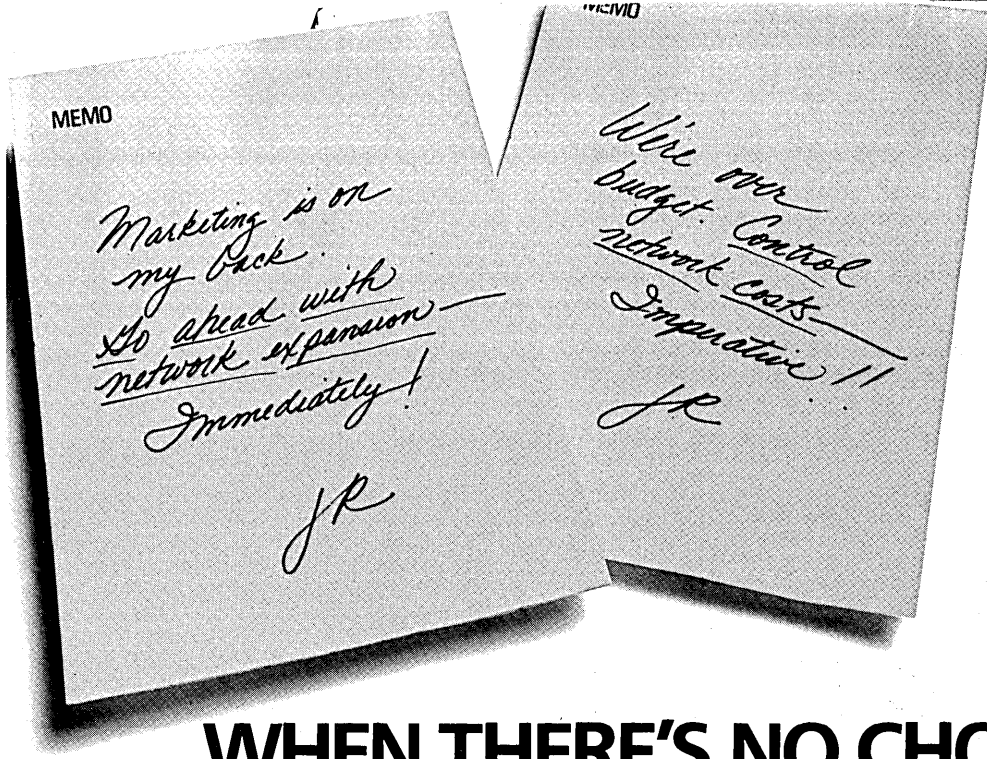 MEMO
Marketing is on
my back.
Go ahead with
network expansion—
Immediately!
JR
MEMO
We're over
budget. Control
network costs—
Imperative!!
JR
WHEN THERE'S NO CHO